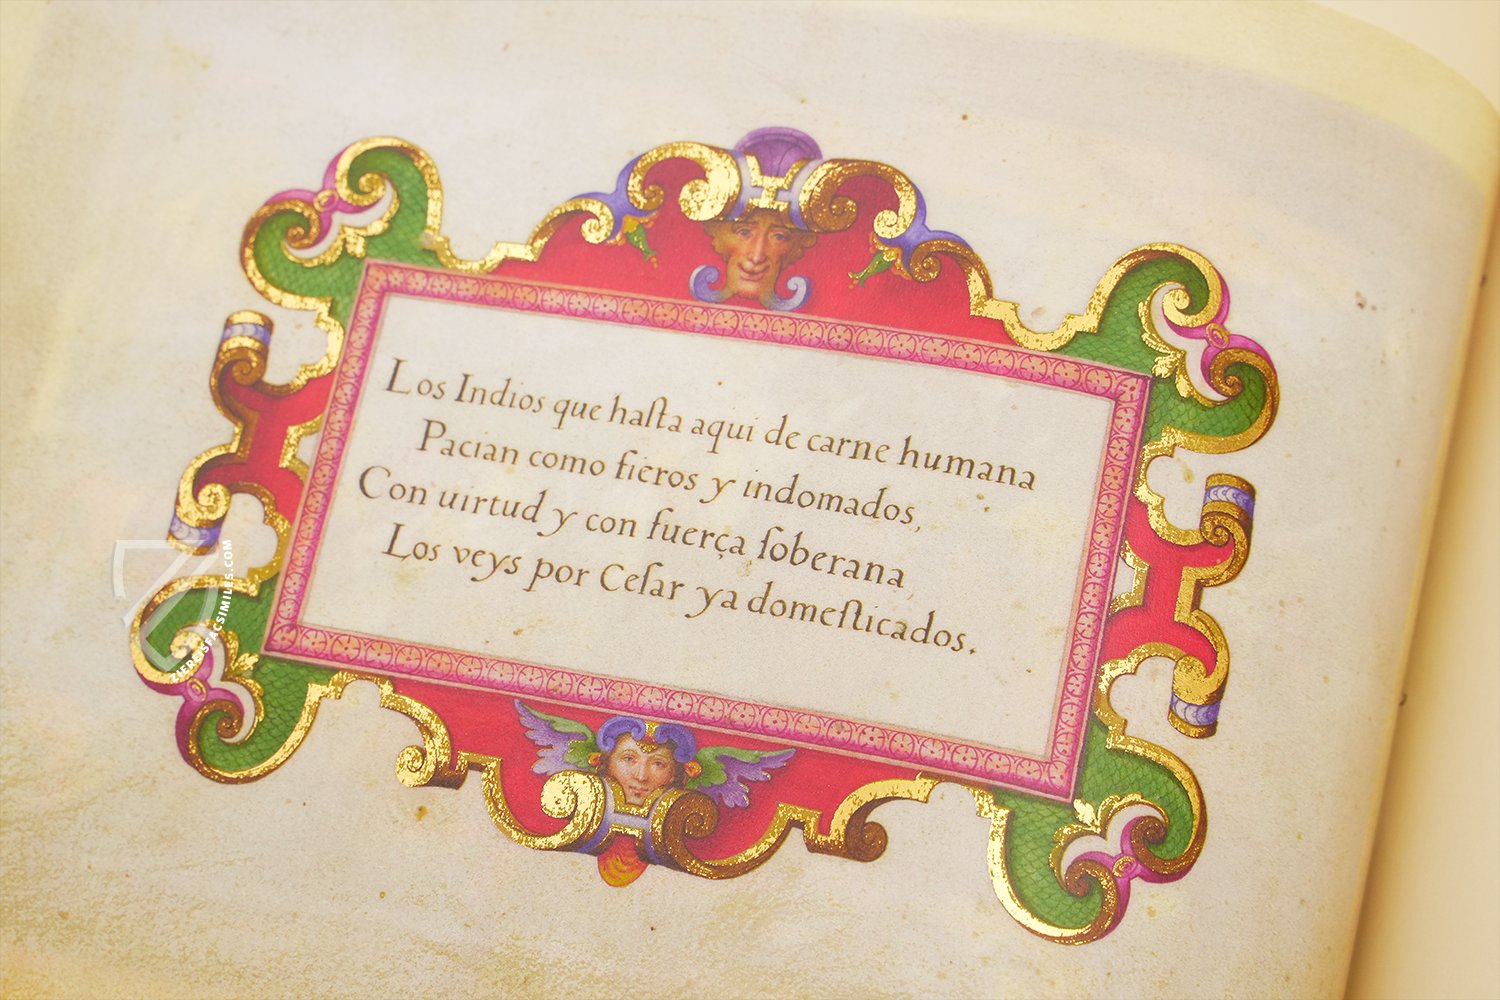 Los Indios que haſta aqui de carne humana
Pacian como fieros y indomados,
Con uirtud y con fuerça ſoberana,
Los veys por Ceſar ya domeſticados.
ZIEREISFACSIMILES.COM